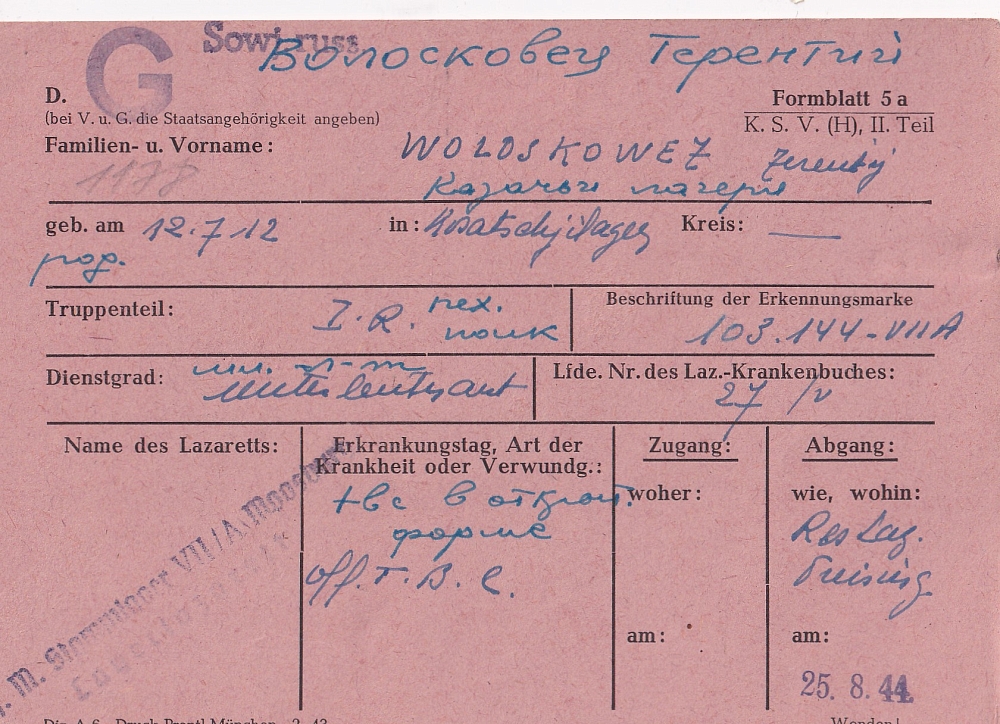 G Sowj. russ.
Волосковец Терентий
D.
(bei V. u. G. die Staatsangehörigkeit angeben)
Formblatt 5 a
K. S. V. (H), II. Teil
Familien- u. Vorname: WOLOSKOWEZ Terentij
1178
Казачьи лагеря
geb. am 12.7.12 in: Kosatschji Lager Kreis: —
род.
Truppenteil: I. R. пех.
полк
Beschriftung der Erkennungsmarke
103.144-VIIA
Dienstgrad: мл. л-т
Unterleutnant
Lfde. Nr. des Laz.-Krankenbuches:
27 /V
Name des Lazaretts:
Erkrankungstag, Art der
Krankheit oder Verwundg.:
Zugang:
Abgang:
твс в открыт.
форме
off. T. B. C.
woher:
wie, wohin:
Res Laz.
Freising
am:
am:
25. 8. 44.
M. Stammlager VII/A Moosburg
Din A 6 Druck Prestl München 2. 43.
Wenden!